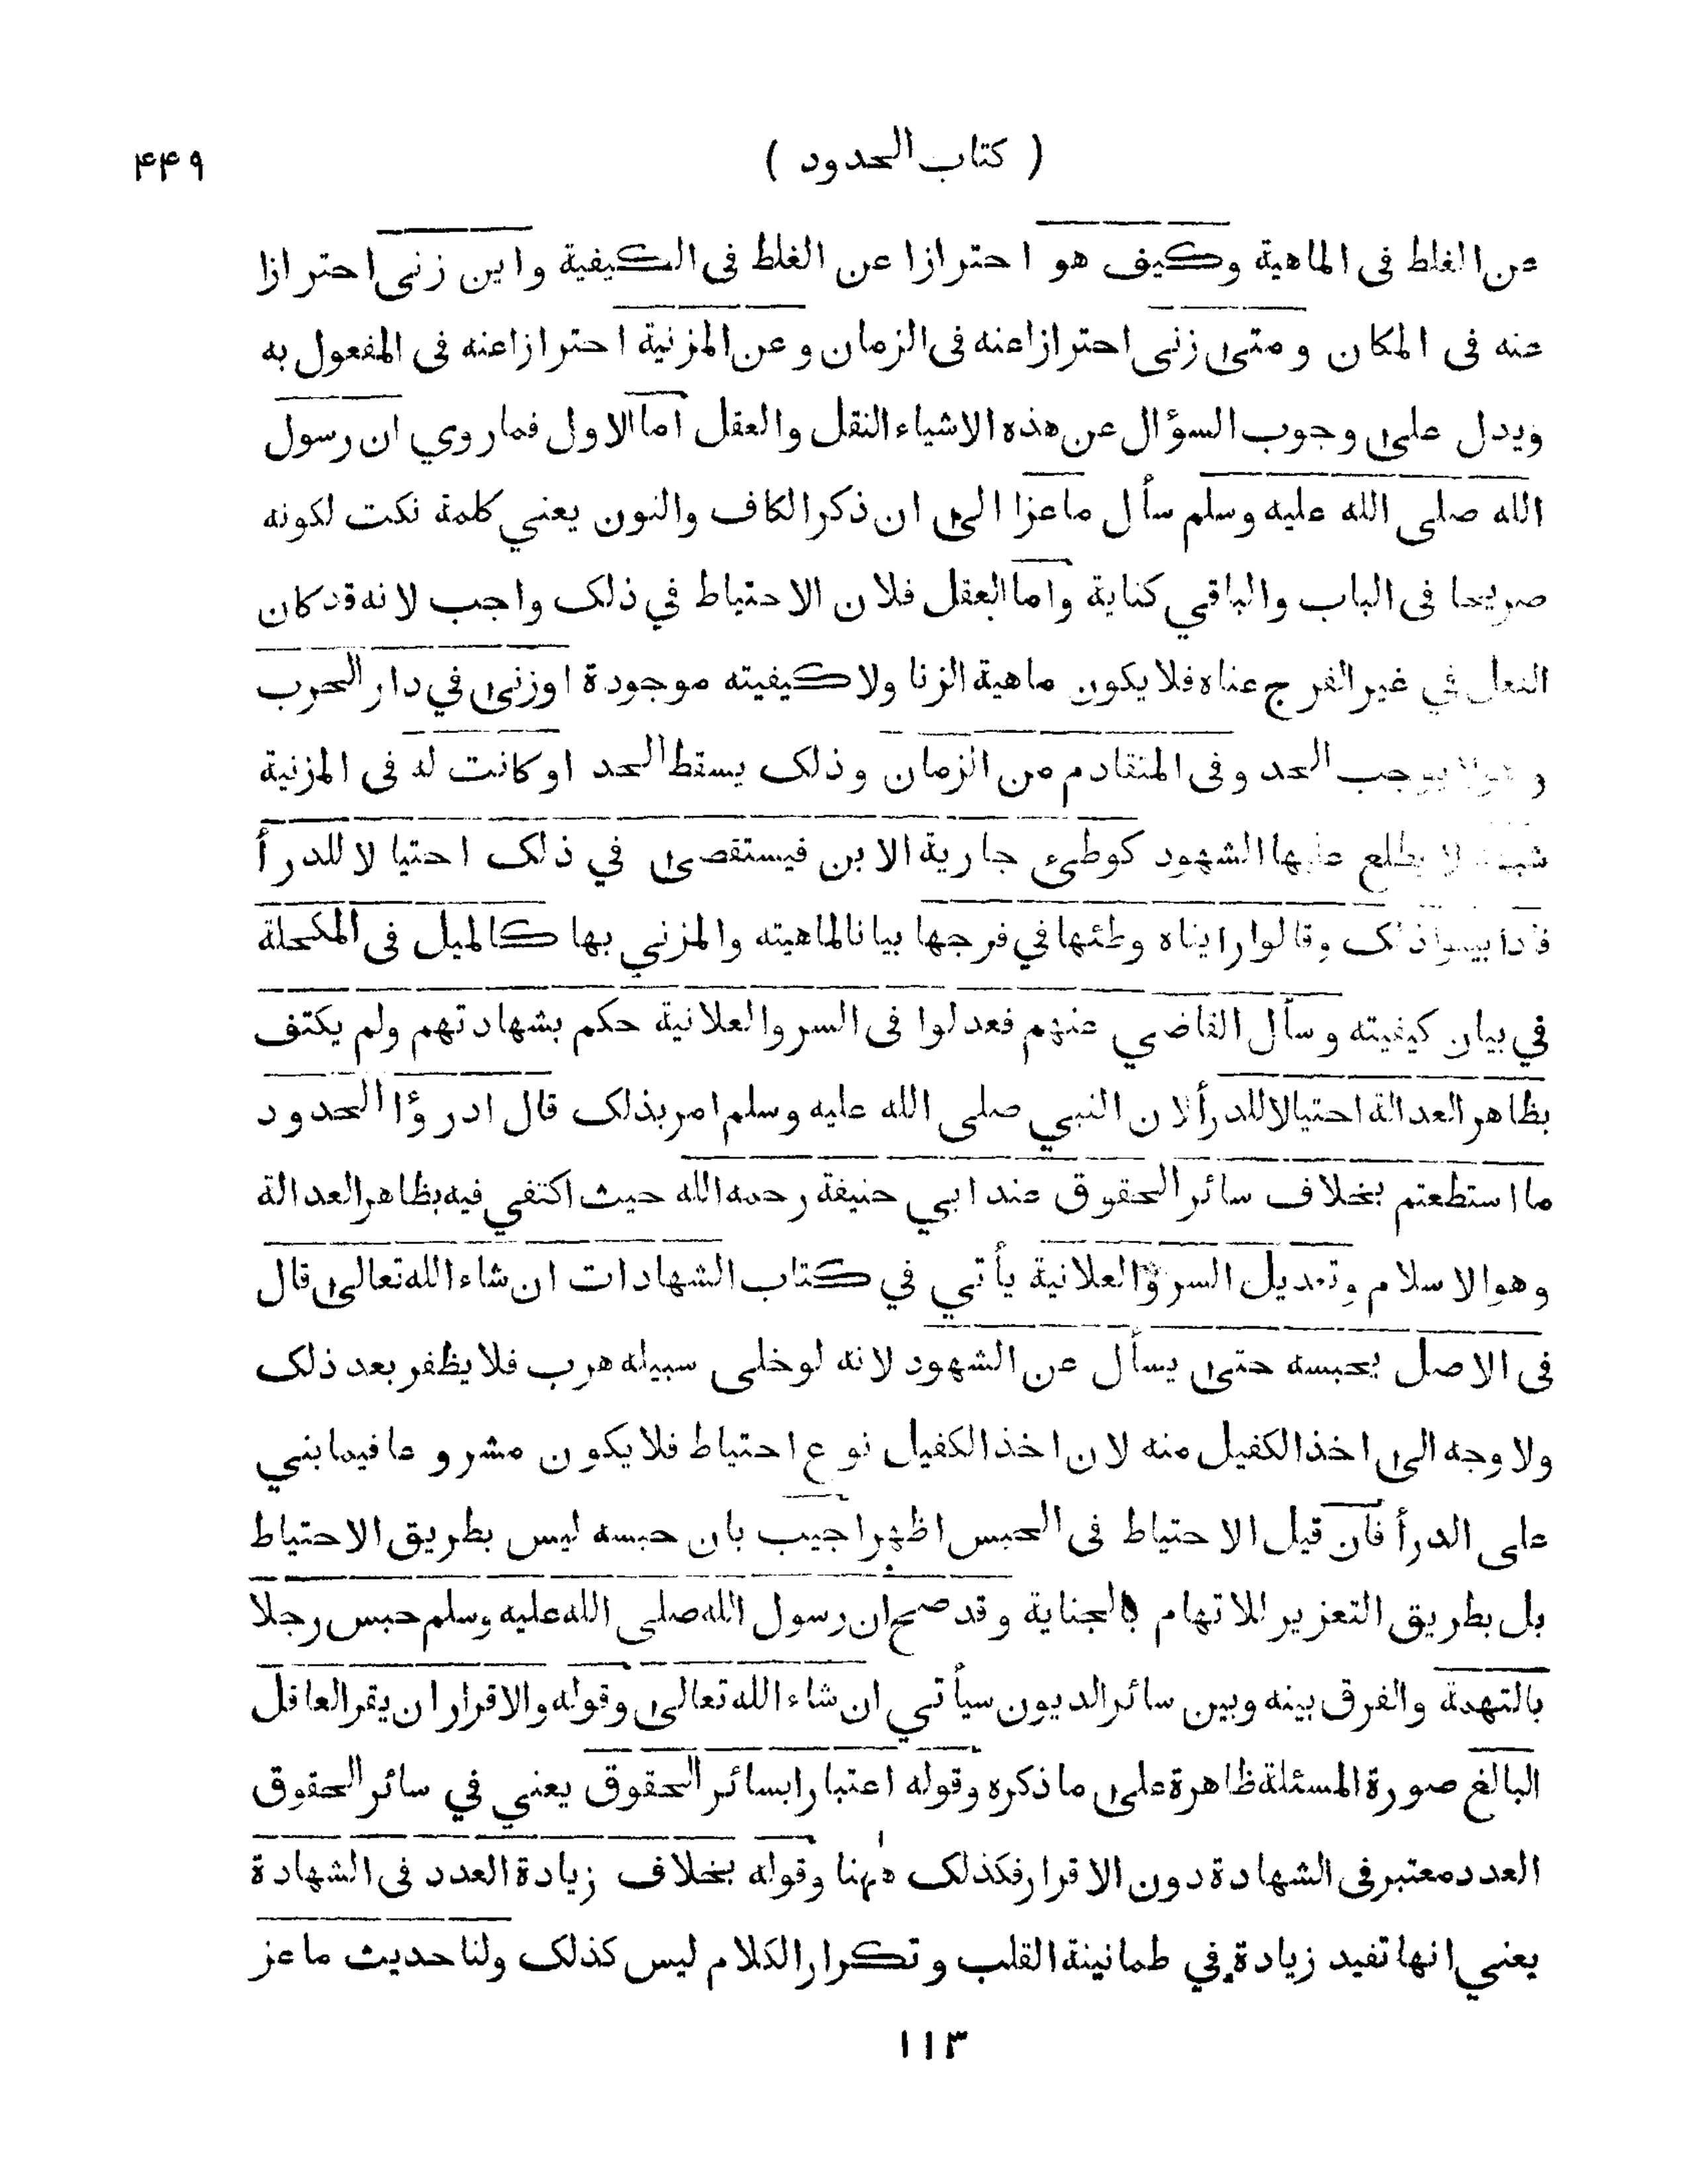 ( كتاب الحدود )
۴۴۹
عن الغلط فى الماهية وكيف هو احترازا عن الغلط فى الكيفية واين زنى احترازا
عنه فى المكان ومتى زنى احترازا عنه فى الزمان وعن المزنية احترازا عنه فى المفعول به
ويدل على وجوب السؤال عن هذه الاشياء النقل والعقل اما الاول فما روي ان رسول
الله صلى الله عليه وسلم سأل ماعزا الى ان ذكر الكاف والنون يعني كلمة نكت لكونه
صريحا فى الباب والباقي كناية واما العقل فلان الاحتياط في ذلك واجب لانه قد كان
الفعل في غير الفرج عناه فلا يكون ماهية الزنا ولا كيفيته موجودة اوزنى في دار الحرب
و يوجب الحد وفى المتقادم من الزمان وذلك يسقط الحد او كانت له فى المزنية
شبهة لا يطلع عليها الشهود كوطئ جارية الابن فيستقصى في ذلك احتيالا للدرأ
فاذا بينوا ذلك وقالوا رايناه وطئها في فرجها بيانا لماهيته والمزني بها كالميل فى المكحلة
في بيان كيفيته وسأل القاضي عنهم فعدلوا فى السر والعلانية حكم بشهادتهم ولم يكتف
بظاهر العدالة احتيالا للدرأ لان النبي صلى الله عليه وسلم امر بذلك قال ادرؤا الحدود
ما استطعتم بخلاف سائر الحقوق عند ابي حنيفة رحمه الله حيث اكتفي فيه بظاهر العدالة
وهو الاسلام وتعديل السر والعلانية يأتي في كتاب الشهادات ان شاء الله تعالى قال
فى الاصل يحبسه حتى يسأل عن الشهود لانه لوخلى سبيله هرب فلا يظفر بعد ذلك
ولا وجه الى اخذ الكفيل منه لان اخذ الكفيل نوع احتياط فلا يكون مشروعا فيما بني
على الدرأ فان قيل الاحتياط فى الحبس اظهر اجيب بان حبسه ليس بطريق الاحتياط
بل بطريق التعزير للاتهام بالجناية وقد صح ان رسول الله صلى الله عليه وسلم حبس رجلا
بالتهمة والفرق بينه وبين سائر الديون سيأتي ان شاء الله تعالى وقوله والاقرار ان يقر العاقل
البالغ صورة المسئلة ظاهرة على ما ذكره وقوله اعتبارا بسائر الحقوق يعني في سائر الحقوق
العدد معتبر فى الشهادة دون الاقرار فكذلك ههنا وقوله بخلاف زيادة العدد فى الشهادة
يعني انها تفيد زيادة في طمانينة القلب وتكرار الكلام ليس كذلك ولنا حديث ماعز
۱۱۳